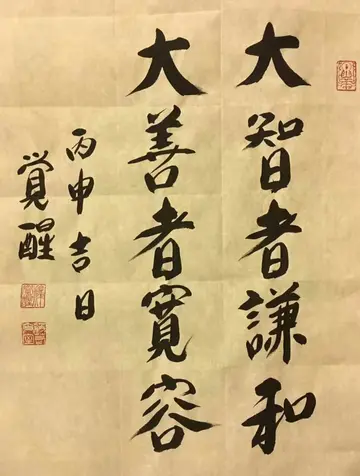 大智者謙和
大善者寬容
丙申吉日
覺醒